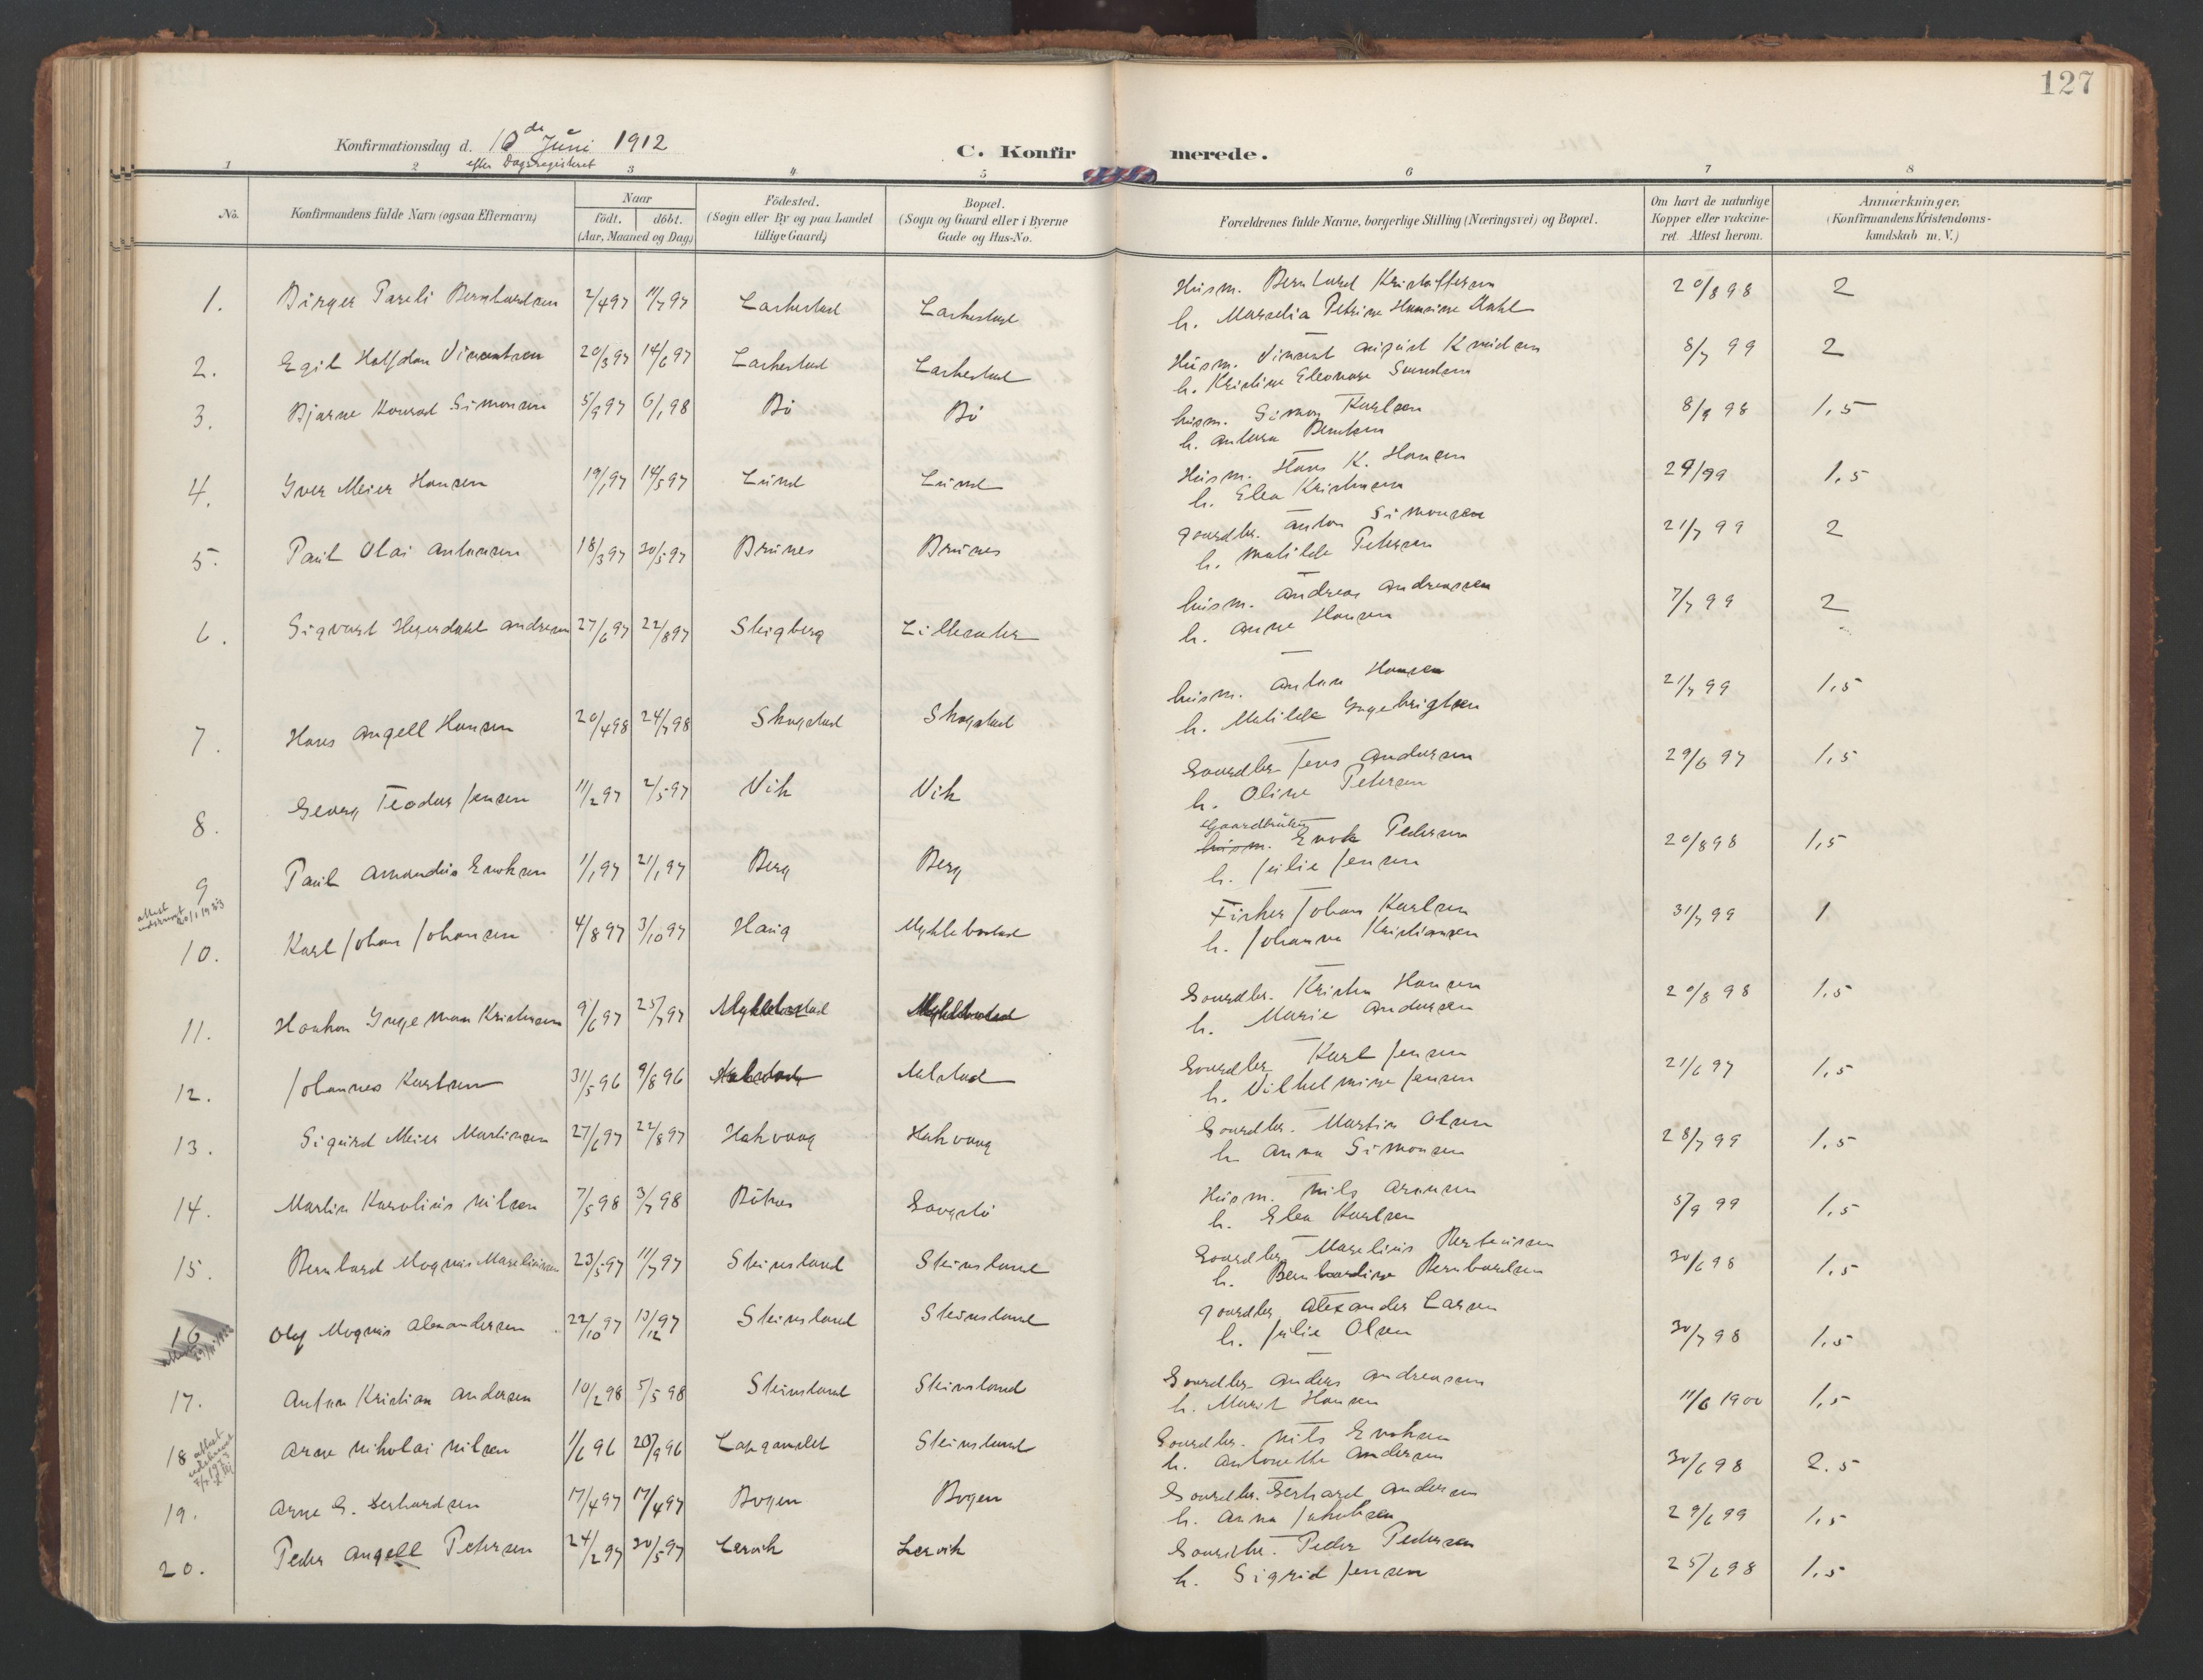 127
Konfirmationsdag d. 16de Juni 1912
efter Dagsregisteret
C. Konfirmerede.
1 2 3 4 5 6 7 8
No. Konfirmandens fulde Navn (ogsaa Efternavn) Naar födt. döbt. (Aar, Maaned og Dag) Födested. (Sogn eller By og paa Landet tillige Gaard) Bopæl. (Sogn og Gaard eller i Byerne Gade og Hus-No. Forældrenes fulde Navne, borgerlige Stilling (Næringsvei) og Bopæl. Om havt de naturlige Kopper eller vakcineret. Attest herom. Anmærkninger. (Konfirmandens Kristendomskundskab m. V.)
1. Birger Pareli Bernhardsen 2/4 97 11/7 97 Laskestad Laskestad Husm. Bernhard Kristoffersen 20/8 98 2
h. Marselia Petrine Hansine Dahl
2. Egil Halfdan Vinentsen 20/3 97 14/6 97 Laskestad Laskestad Husm. Vinsent August Knudsen 8/7 99 2
h. Kristine Eleonora
3. Bjarne Konrad Simonsen 5/9 97 6/1 98 Bö Bö husm. Simon Karlsen 8/9 98 1,5
h. Antora Berntsen
4. Iver Meier Hansen 19/1 97 14/5 97 Lund Lund Husm. Hans K. Hansen 1,5
h. Elea Kristensen
5. Paul Olai Antonsen 18/3 97 30/5 97 Brunes Brunes gaardbr. Anton Simonsen 21/7 99 2
h. Matilde Petersen
6. Sigvart Hegerdahl Andreasen 27/6 97 22/8 97 Steigberg husm. Andreas Andreassen 7/7 99 2
h. Anne Hansen
7. Hans Angell Hansen 20/4 98 24/7 98 Skogstad Skogstad husm. Anton Hansen 21/7 99 1,5
h. Matilde Ingebrigtsen
8. Georg Teodor Jensen 11/2 97 2/5 97 Vik Vik Gaardbr Jens Andersen 29/6 97 1,5
h. Oline Petersen
Gaardbruker
9 Paul Amandus Enoksen 1/1 97 21/1 97 Berg Berg husm. Enok Pedersen 20/8 98 1,5
h. Julie Jensen
attest utskrevet 20/1 1933
10. Karl Johan Johansen 4/8 97 3/10 97 Haug Myklebostad Fisker Johan Karlsen 31/7 99 1
h. Johanna Kristiansen
11. Haakon Ingeman Kristensen 9/6 97 25/7 97 Myklebostad Myklebostad Gaardbr. Kristen Hansen 20/8 98 1,5
h. Marie Andersen
12. Johannes Karlsen 31/5 96 9/8 96 Aalstad Gaardbr Karl Jensen 21/6 97 1,5
h. Vilhelmine Jensen
13. Sigurd Meier Martinsen 27/6 97 22/8 97 Hakvaag Hakvaag Gaardbr. Martin Olsen 28/7 99 1,5
h Anna Simonsen
14. Martin Karolius Nilsen 7/5 98 3/7 98 Bötnes Husm. Nils Aronsen 5/9 99 1,5
h. Elea Karlsen
15. Bernhard Magnus Mareliusen 23/5 97 11/7 97 Steinsland Steinsland Gaardbr Marelius Berteusen 30/6 98 1,5
h. Bernhardine Bernhardsen
16 Olaf Magnus Alexandersen 22/10 97 13/12 97 Steinsland Steinsland gaardbr Alexander Larsen 30/7 98 1,5
h. Julie Olsen
17. Anton Kristian Andersen 10/2 98 5/5 98 Steinsland Steinsland Gaardbr. Anders Andreasen 11/6 1900 1,5
h. Marit Hansen
18 attest utskrevet Arne Nikolai Nilsen 1/6 96 20/9 96 Steinsland Gaardbr. Nils Enoksen 30/6 98 2.5
h. Antonette Andersen
19. Arne G. Gerhardsen 17/4 97 17/4 97 Bogen Bogen Gaardbr. Gerhard Andersen 29/6 99 1,5
h. Anna Jakobsen
20. Peder Angell Petersen 24/2 97 30/5 97 Lervik Lervik Gaardbr. Peder Pedersen 25/6 98 1,5
h. Sigrid Jensen